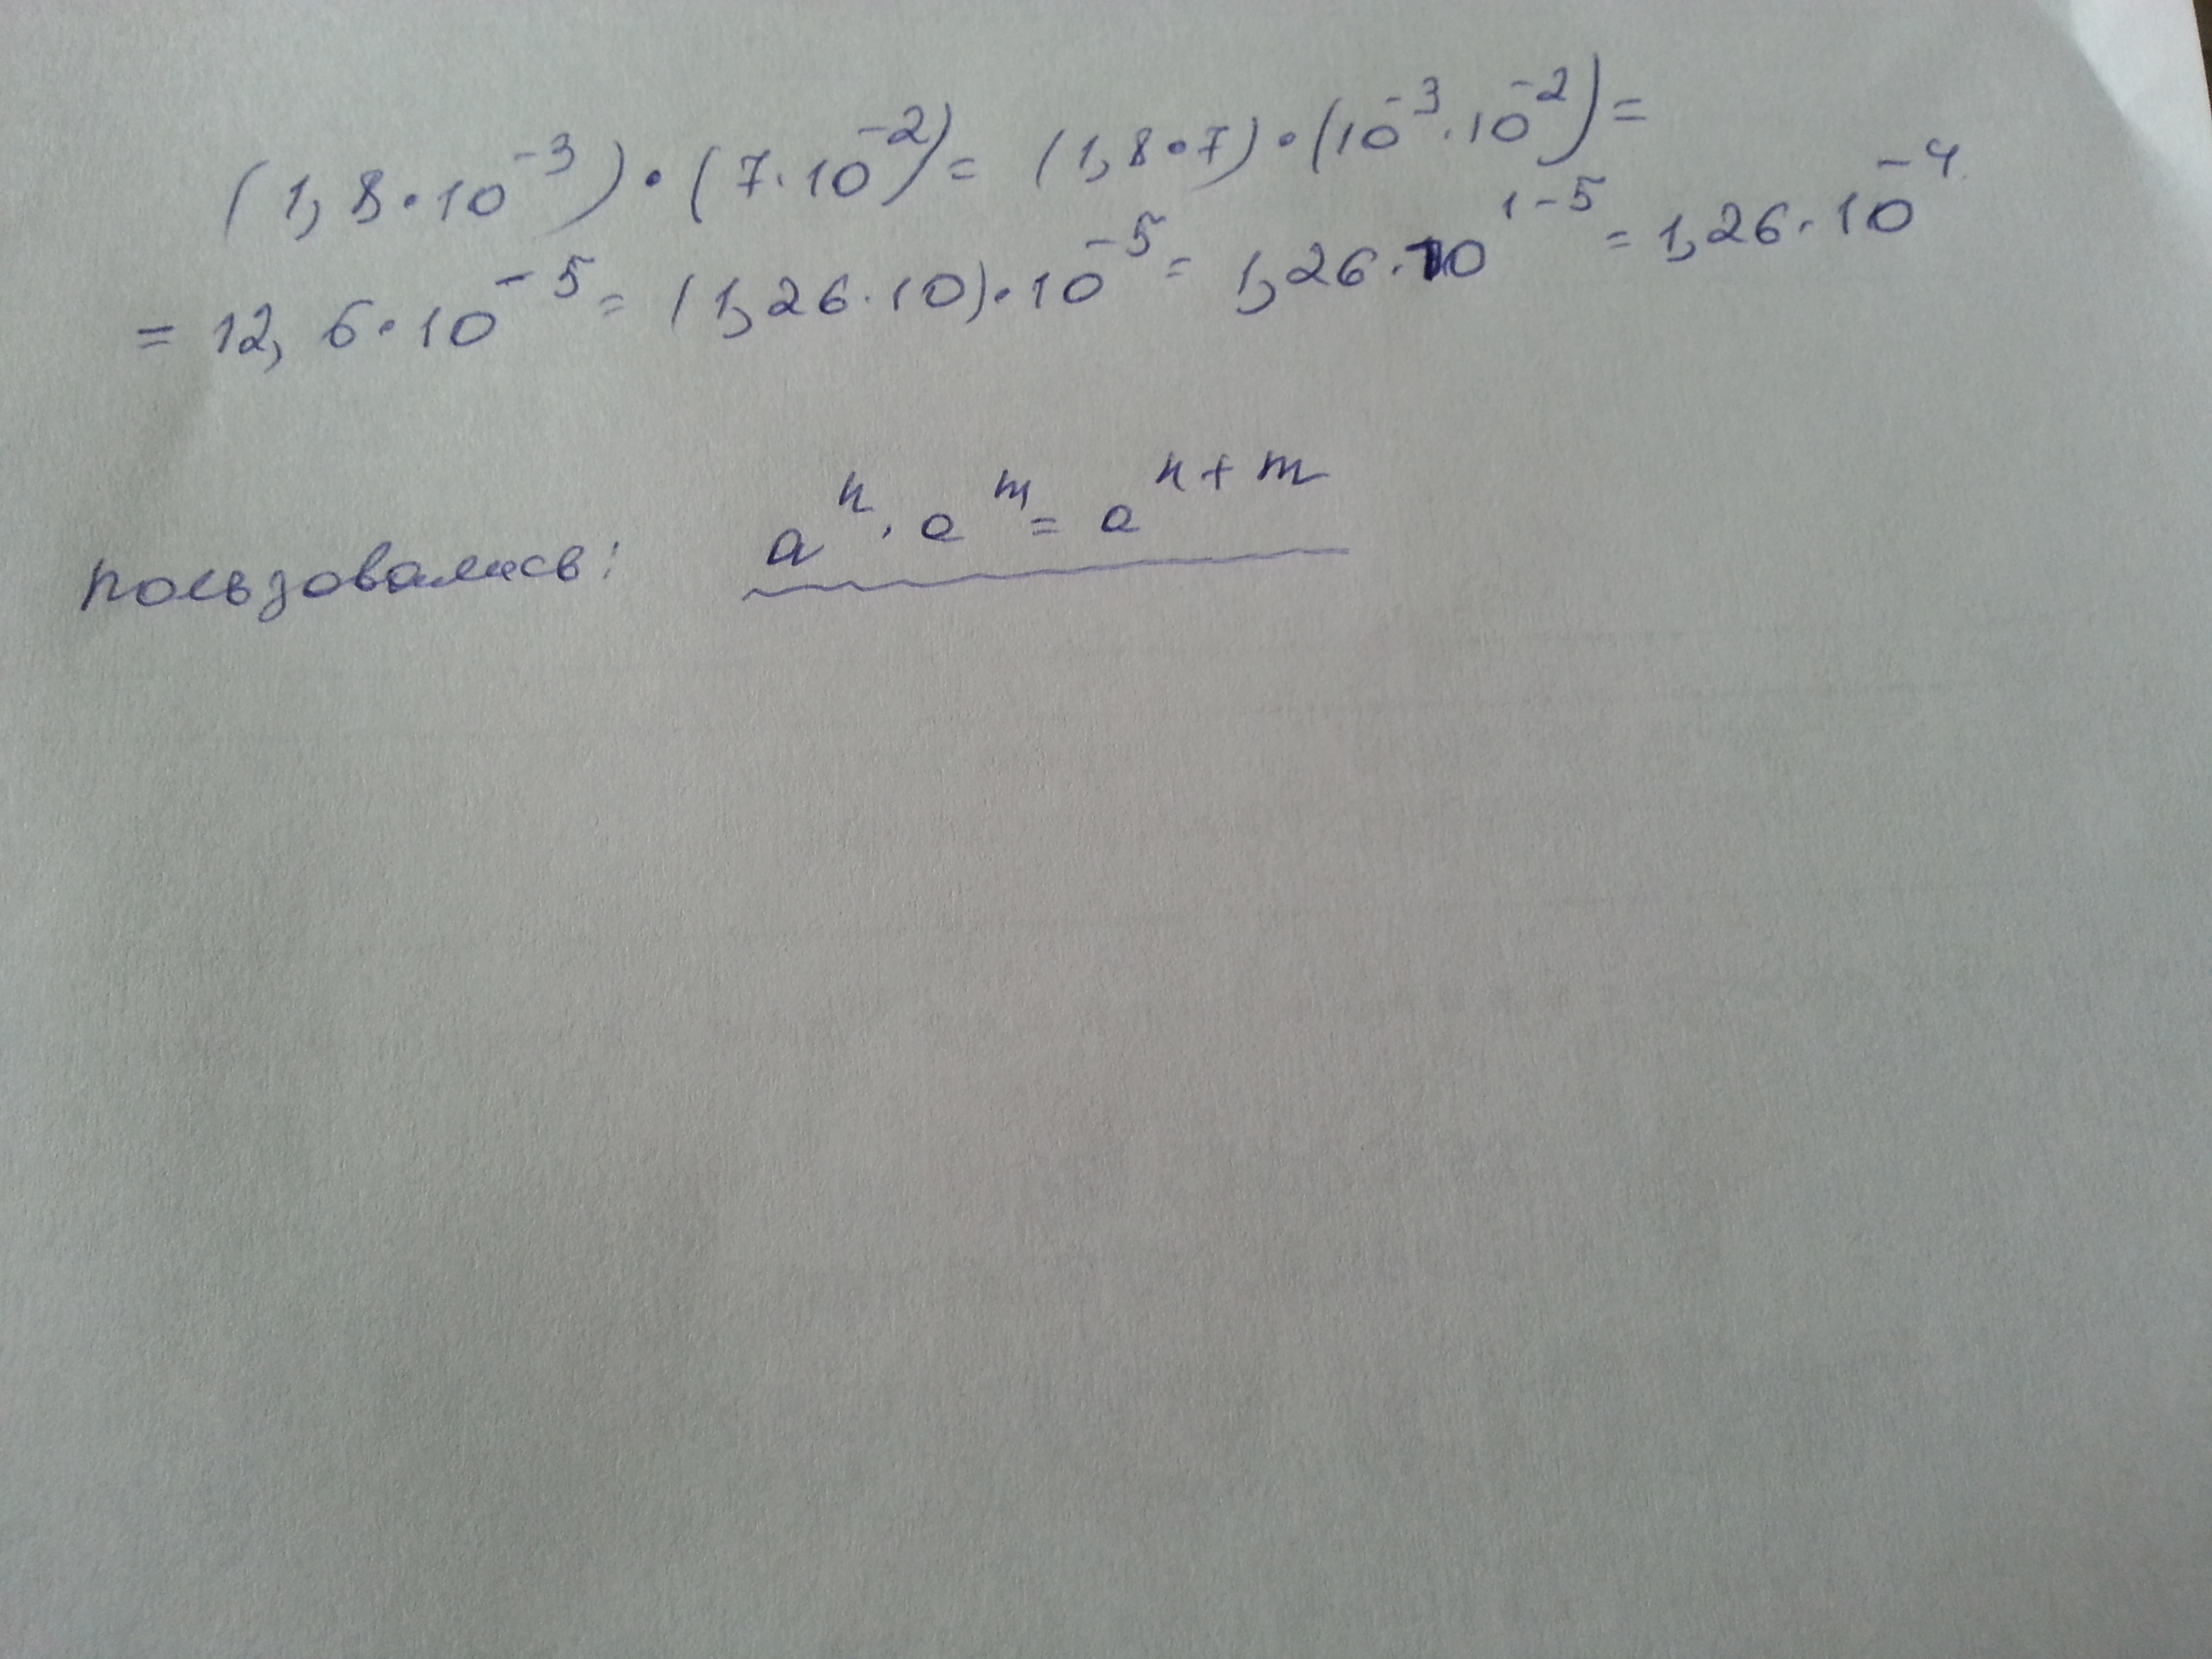 (1,8·10⁻³)·(7·10⁻²)= (1,8·7)·(10⁻³·10⁻²)=
= 12,6·10⁻⁵= (1,26·10)·10⁻⁵= 1,26·10¹⁻⁵= 1,26·10⁻⁴
пользовались: aⁿ·aᵐ= aⁿ⁺ᵐ